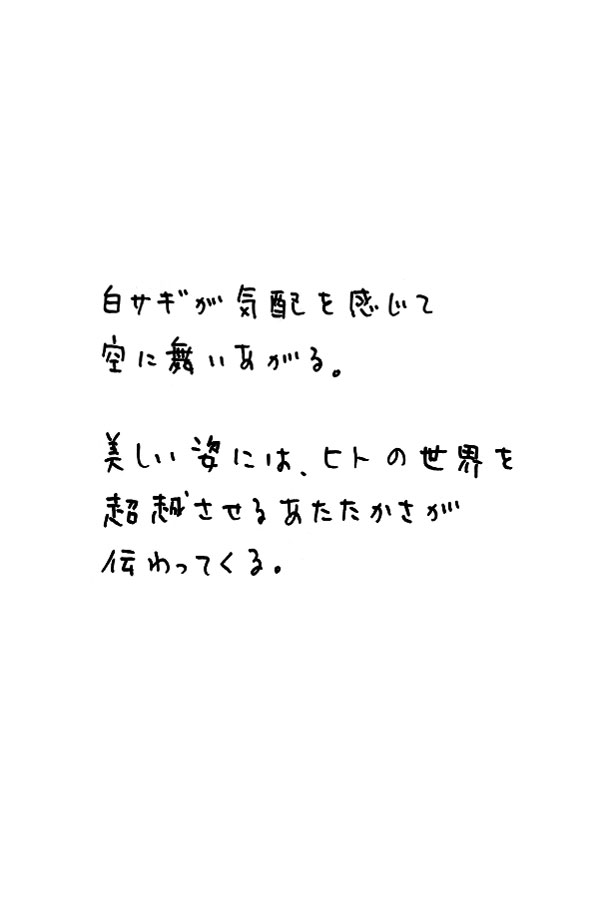 白サギが気配を感じて
空に舞いあがる。
美しい姿には、ヒトの世界を
超越させるあたたかさが
伝わってくる。